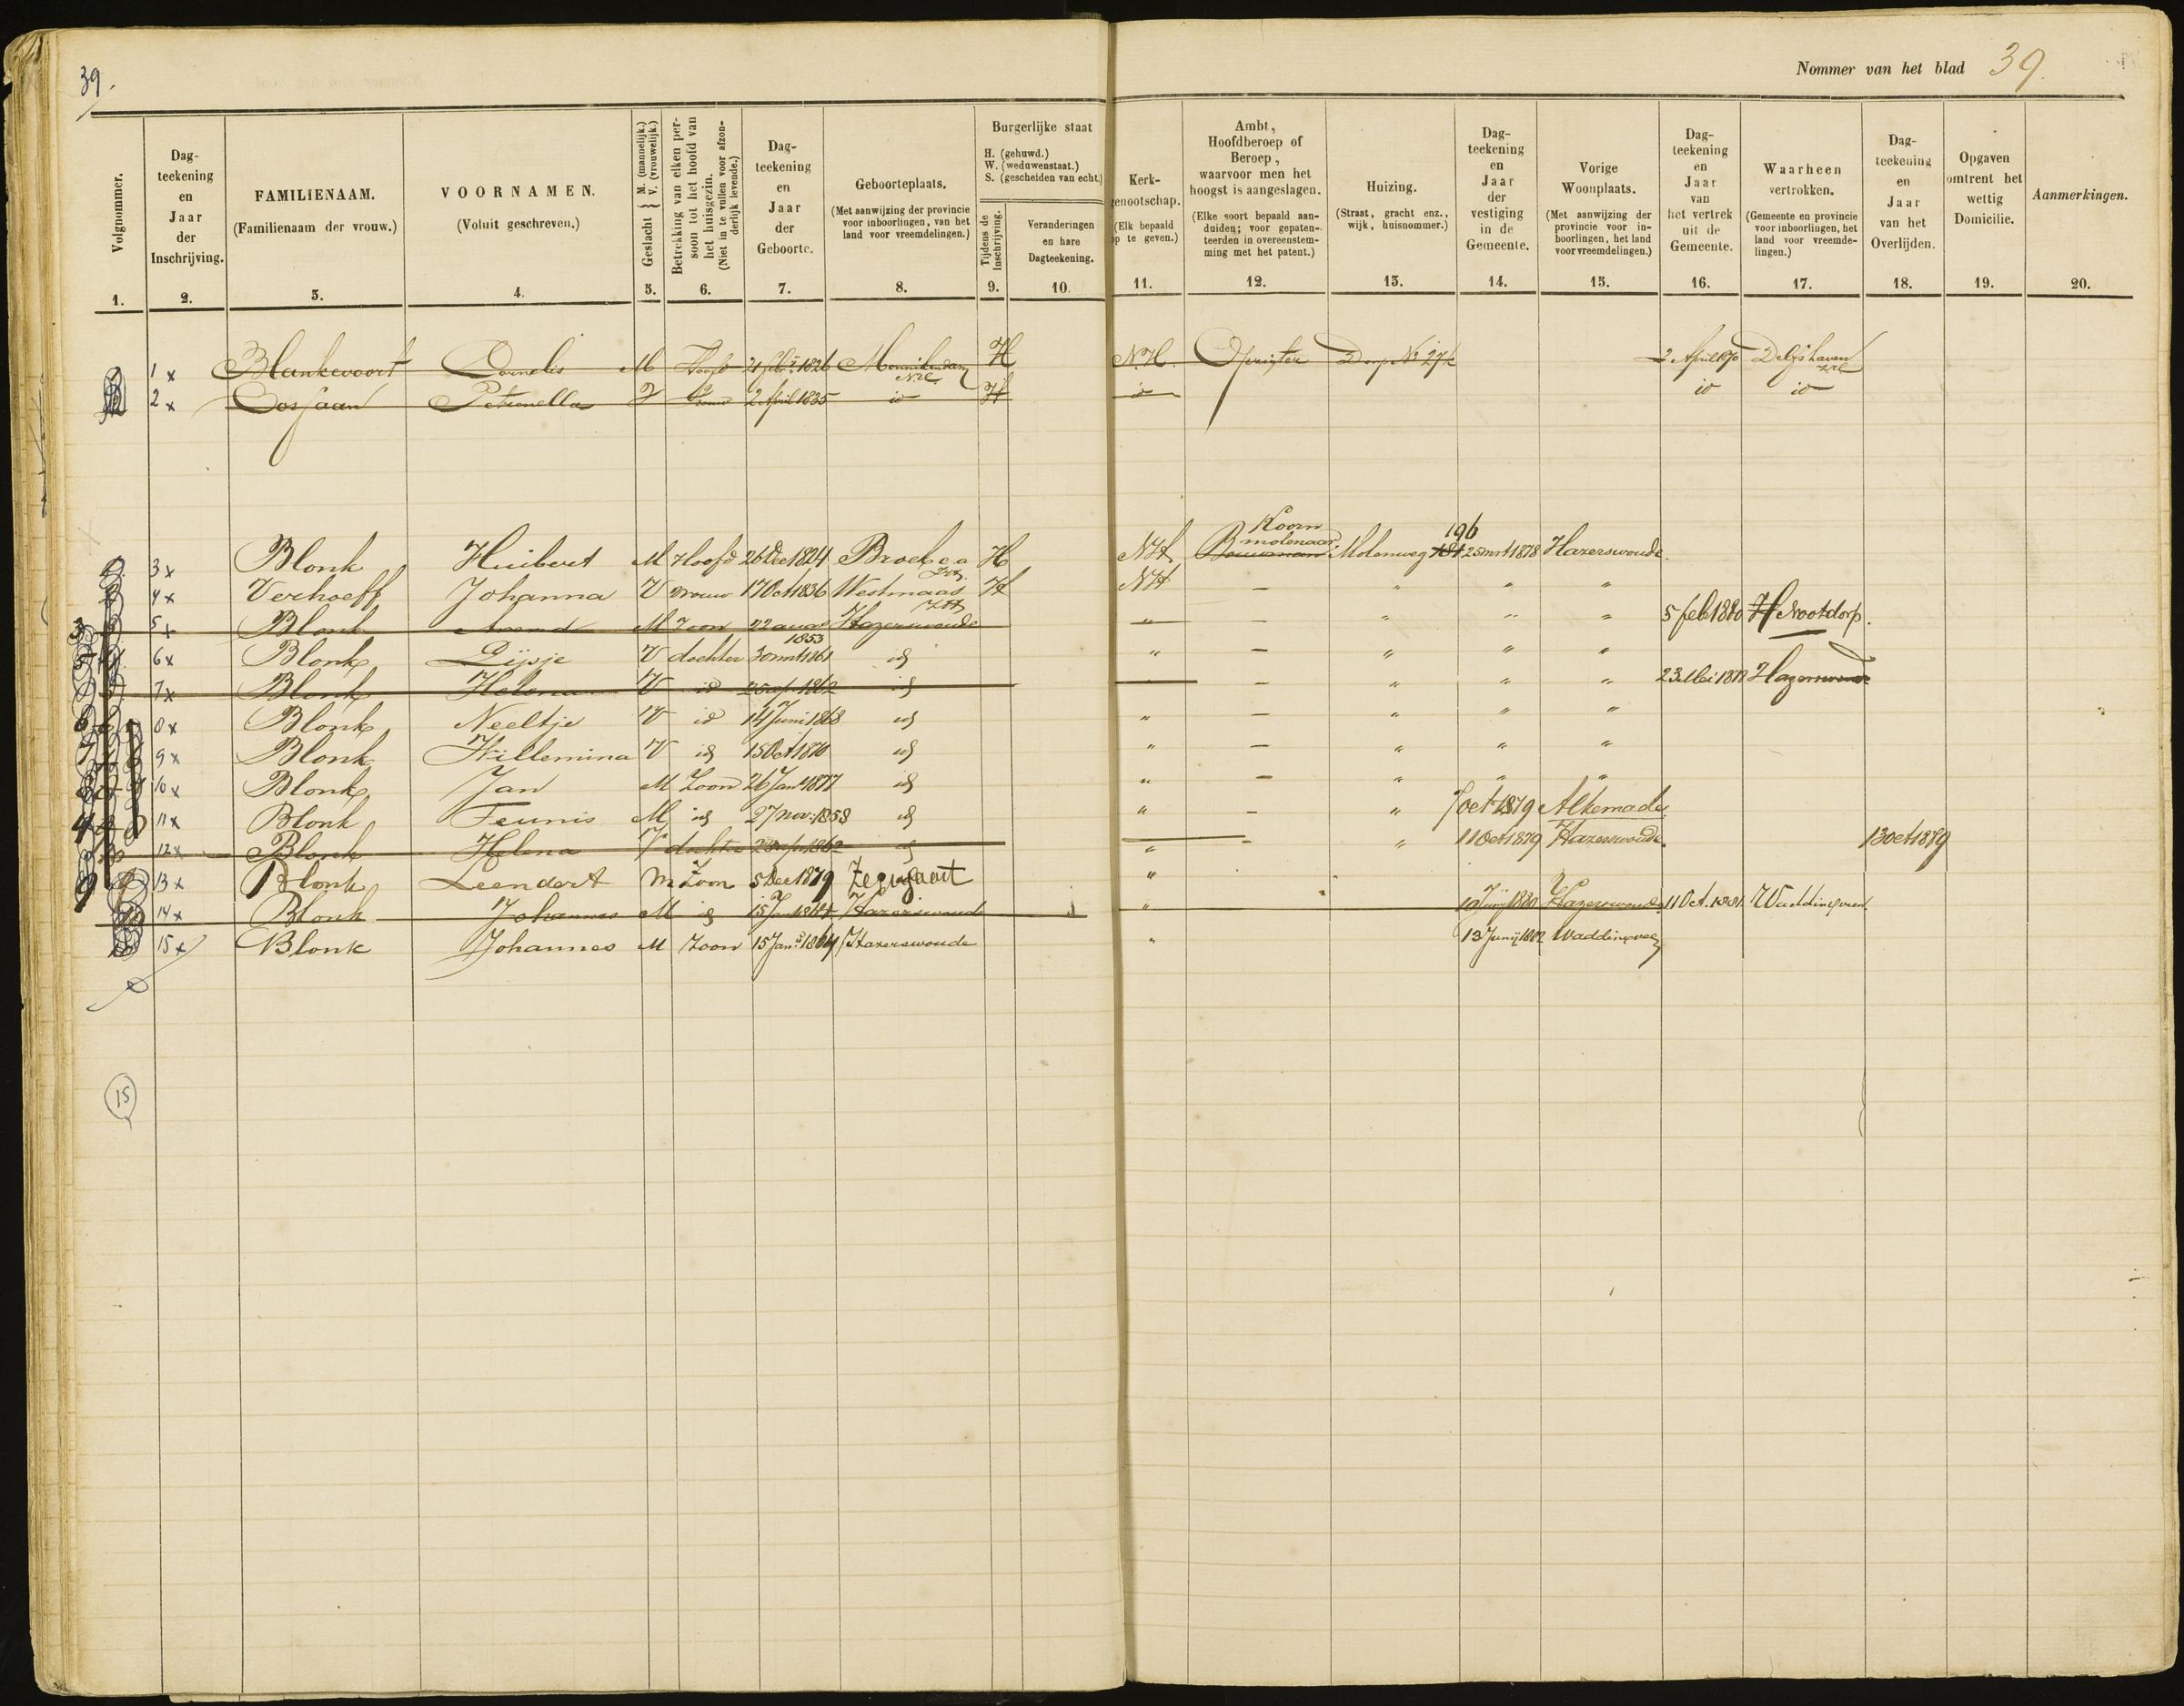 39.
Nommer van het blad 39.
Volgnommer.
1.
Dag-
teekening
en
Jaar
der
Inschrijving.
2.
FAMILIENAAM.
(Familienaam der vrouw.)
3.
VOORNAMEN.
(Voluit geschreven.)
4.
Geslacht { M. (mannelijk.) V. (vrouwelijk.)
5.
Betrekking van elken per-
soon tot het hoofd van
het huisgezin.
(Niet in te vullen voor afzon-
derlijk levende.)
6.
Dag-
teekening
en
Jaar
der
Geboorte.
7.
Geboorteplaats.
(Met aanwijzing der provincie
voor inboorlingen, van het
land voor vreemdelingen.)
8.
Burgerlijke staat
H. (gehuwd.)
W. (weduwenstaat.)
S. (gescheiden van echt.)
Tijdens de
Inschrijving.
9.
Veranderingen
en hare
Dagteekening.
10.
Kerk-
genootschap.
(Elk bepaald
op te geven.)
11.
Ambt,
Hoofdberoep of
Beroep,
waarvoor men het
hoogst is aangeslagen.
(Elke soort bepaald aan-
duiden; voor gepaten-
teerden in overeenstem-
ming met het patent.)
12.
Huizing.
(Straat, gracht enz.,
wijk, huisnommer.)
13.
Dag-
teekening
en
Jaar
der
vestiging
in de
Gemeente.
14.
Vorige
Woonplaats.
(Met aanwijzing der
provincie voor in-
boorlingen, het land
voor vreemdelingen.)
15.
Dag-
teekening
en
Jaar
van
het vertrek
uit de
Gemeente.
16.
Waarheen
vertrokken.
(Gemeente en provincie
voor inboorlingen, het
land voor vreemde-
lingen.)
17.
Dag-
teekening
en
Jaar
van het
Overlijden.
18.
Opgaven
omtrent het
wettig
Domicilie.
19.
Aanmerkingen.
20.
1 x Blankevoort Cornelis M Hoofd 1826 Monnikendam H N.H. Opzigter Dorp No 274 2 April 1870 Delfshaven
2 x Petronella V Vrouw 2 April 1835 io H io io io
Koorn 196
3 x Blonk Huibert M Hoofd 26 Dec 1824 Broek c.a H NH Bouwman molenaar Molenweg 25 mrt 1878 Hazerswoude
4 x Verhoeff Johanna V vrouw 17 Oct 1836 Westmaas ZH H NH — " " "
5 x Blonk Arend M Zoon 22 1853 Hazerswoude " — " " " 5 feb 1880 Nootdorp.
6 x Blonk Pijsje V dochter 30 mrt 1861 id " — " " "
7 x Blonk Helena V id 1862 id — " " " 23 Mei 1878 Hazerswoude
8 x Blonk Neeltje V id 14 Juni 1868 id " — " " "
9 x Blonk Willemina V id 15 Oct 1870 id " — " " "
10 x Blonk Jan M Zoon 26 Jan 1877 id " — " " "
11 x Blonk Teunis M id 27 nov: 1858 id " — " 7 oct 1879 Alkemade
12 x Blonk Helena V dochter 1862 id " " 11 Oct 1879 Hazerswoude. 13 oct 1879
13 x Blonk Leendert M Zoon 5 Dec 1879 Zegwaart "
14 x Blonk Johannes M id 15 Jan 1864 Hazerswoude " 1880 Hazerswoude 11 Oct. 1881 Waddinxveen.
15 x Blonk Johannes M Zoon 15 Jan 1864 Hazerswoude " 13 Junij 1882 Waddinxveen
15